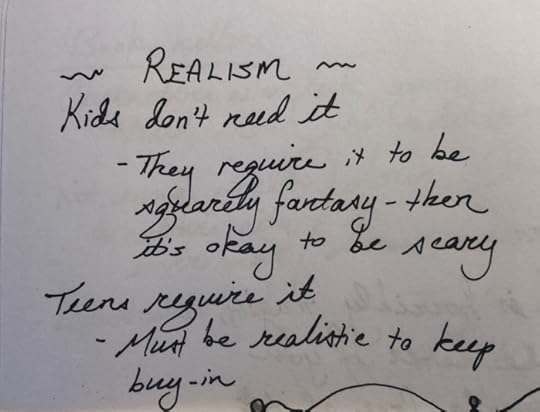 ~ REALISM ~
Kids don't need it
- They require it to be
squarely fantasy - then
it's okay to be scary
Teens require it
- Must be realistic to keep
buy-in